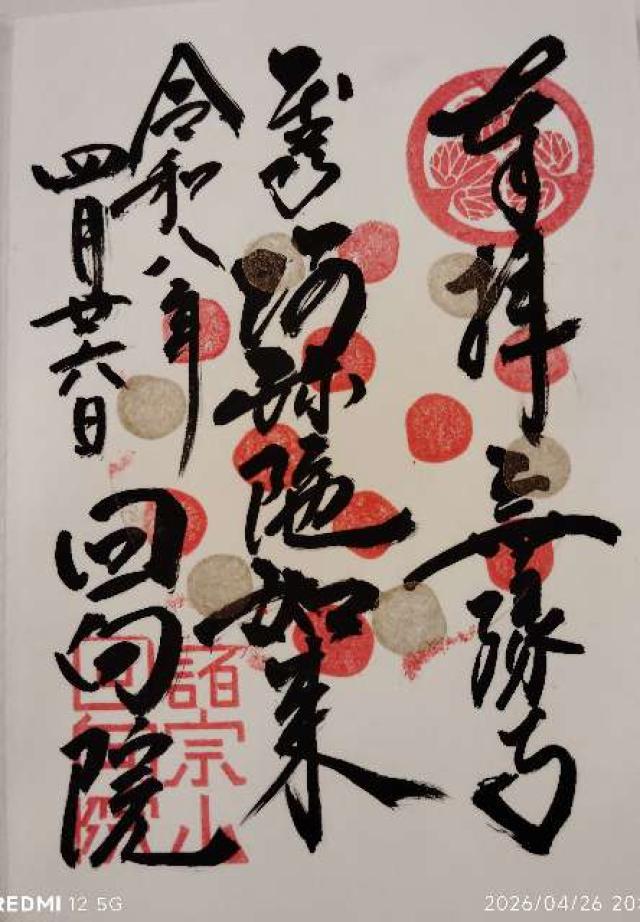 奉拝 無縁寺
阿弥陀如来
令和八年
四月廿六日
回向院
諸宗山
回向院
REDMI 12 5G
2026/04/26 20